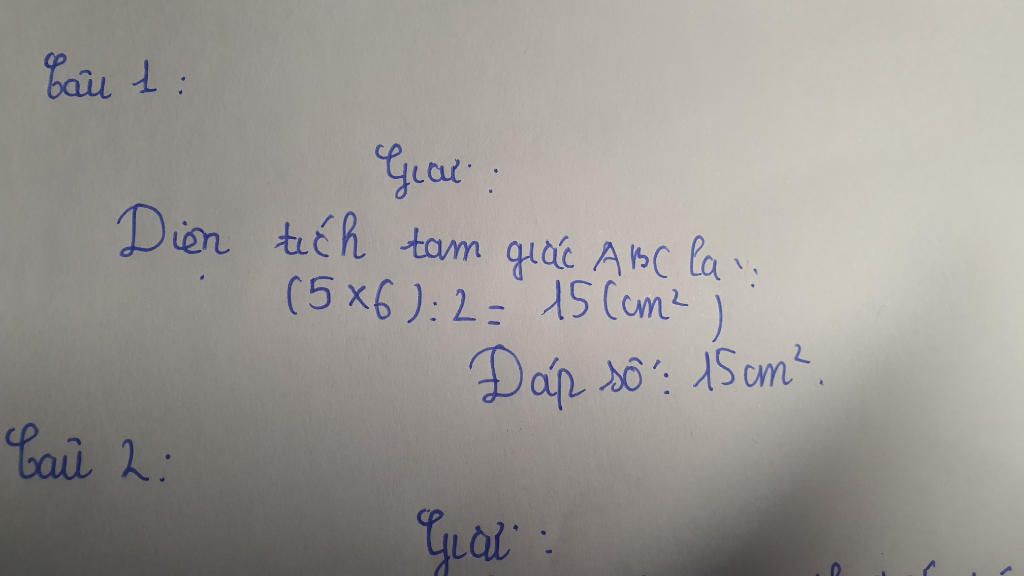 Câu 1 :
Giải :
Diện tích tam giác ABC là :
(5 x 6) : 2 = 15 (cm²)
Đáp số : 15 cm².
Câu 2 :
Giải :